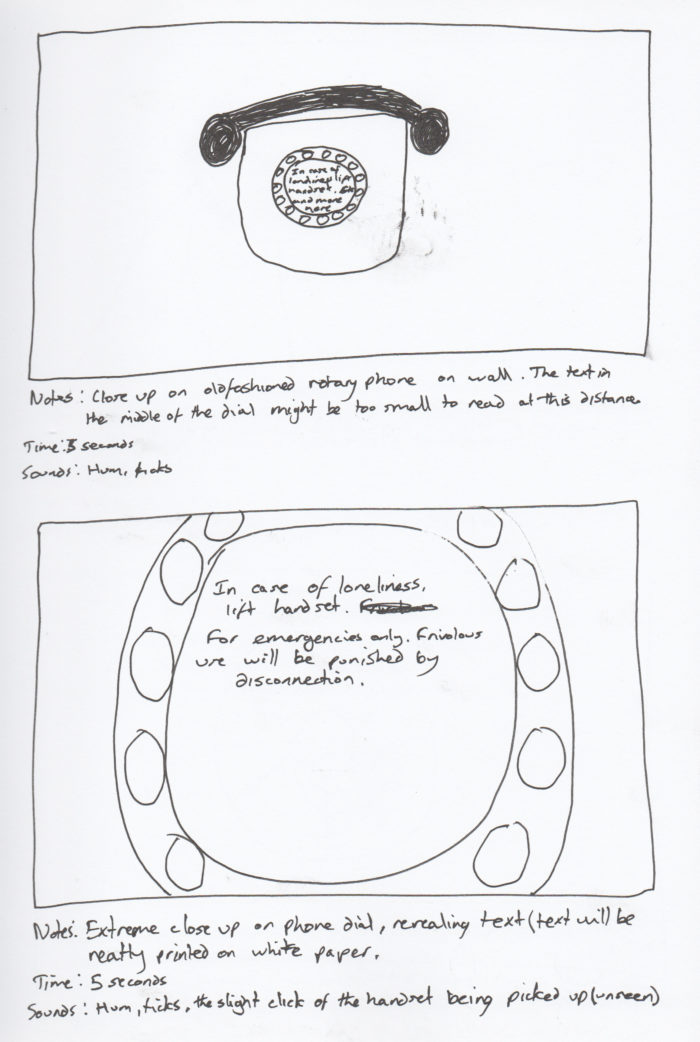 In case of
loneliness lift
handset.
and more
here
Notes: Close up on oldfashioned rotary phone on wall. The text in
the middle of the dial might be too small to read at this distance
Time: 5 seconds
Sounds: Hum, ticks
In case of loneliness,
lift handset.
For emergencies only. Frivolous
use will be punished by
disconnection.
Notes: Extreme close up on phone dial, revealing text (text will be
neatly printed on white paper.
Time: 5 seconds
Sounds: Hum, ticks, the slight click of the handset being picked up (unseen)